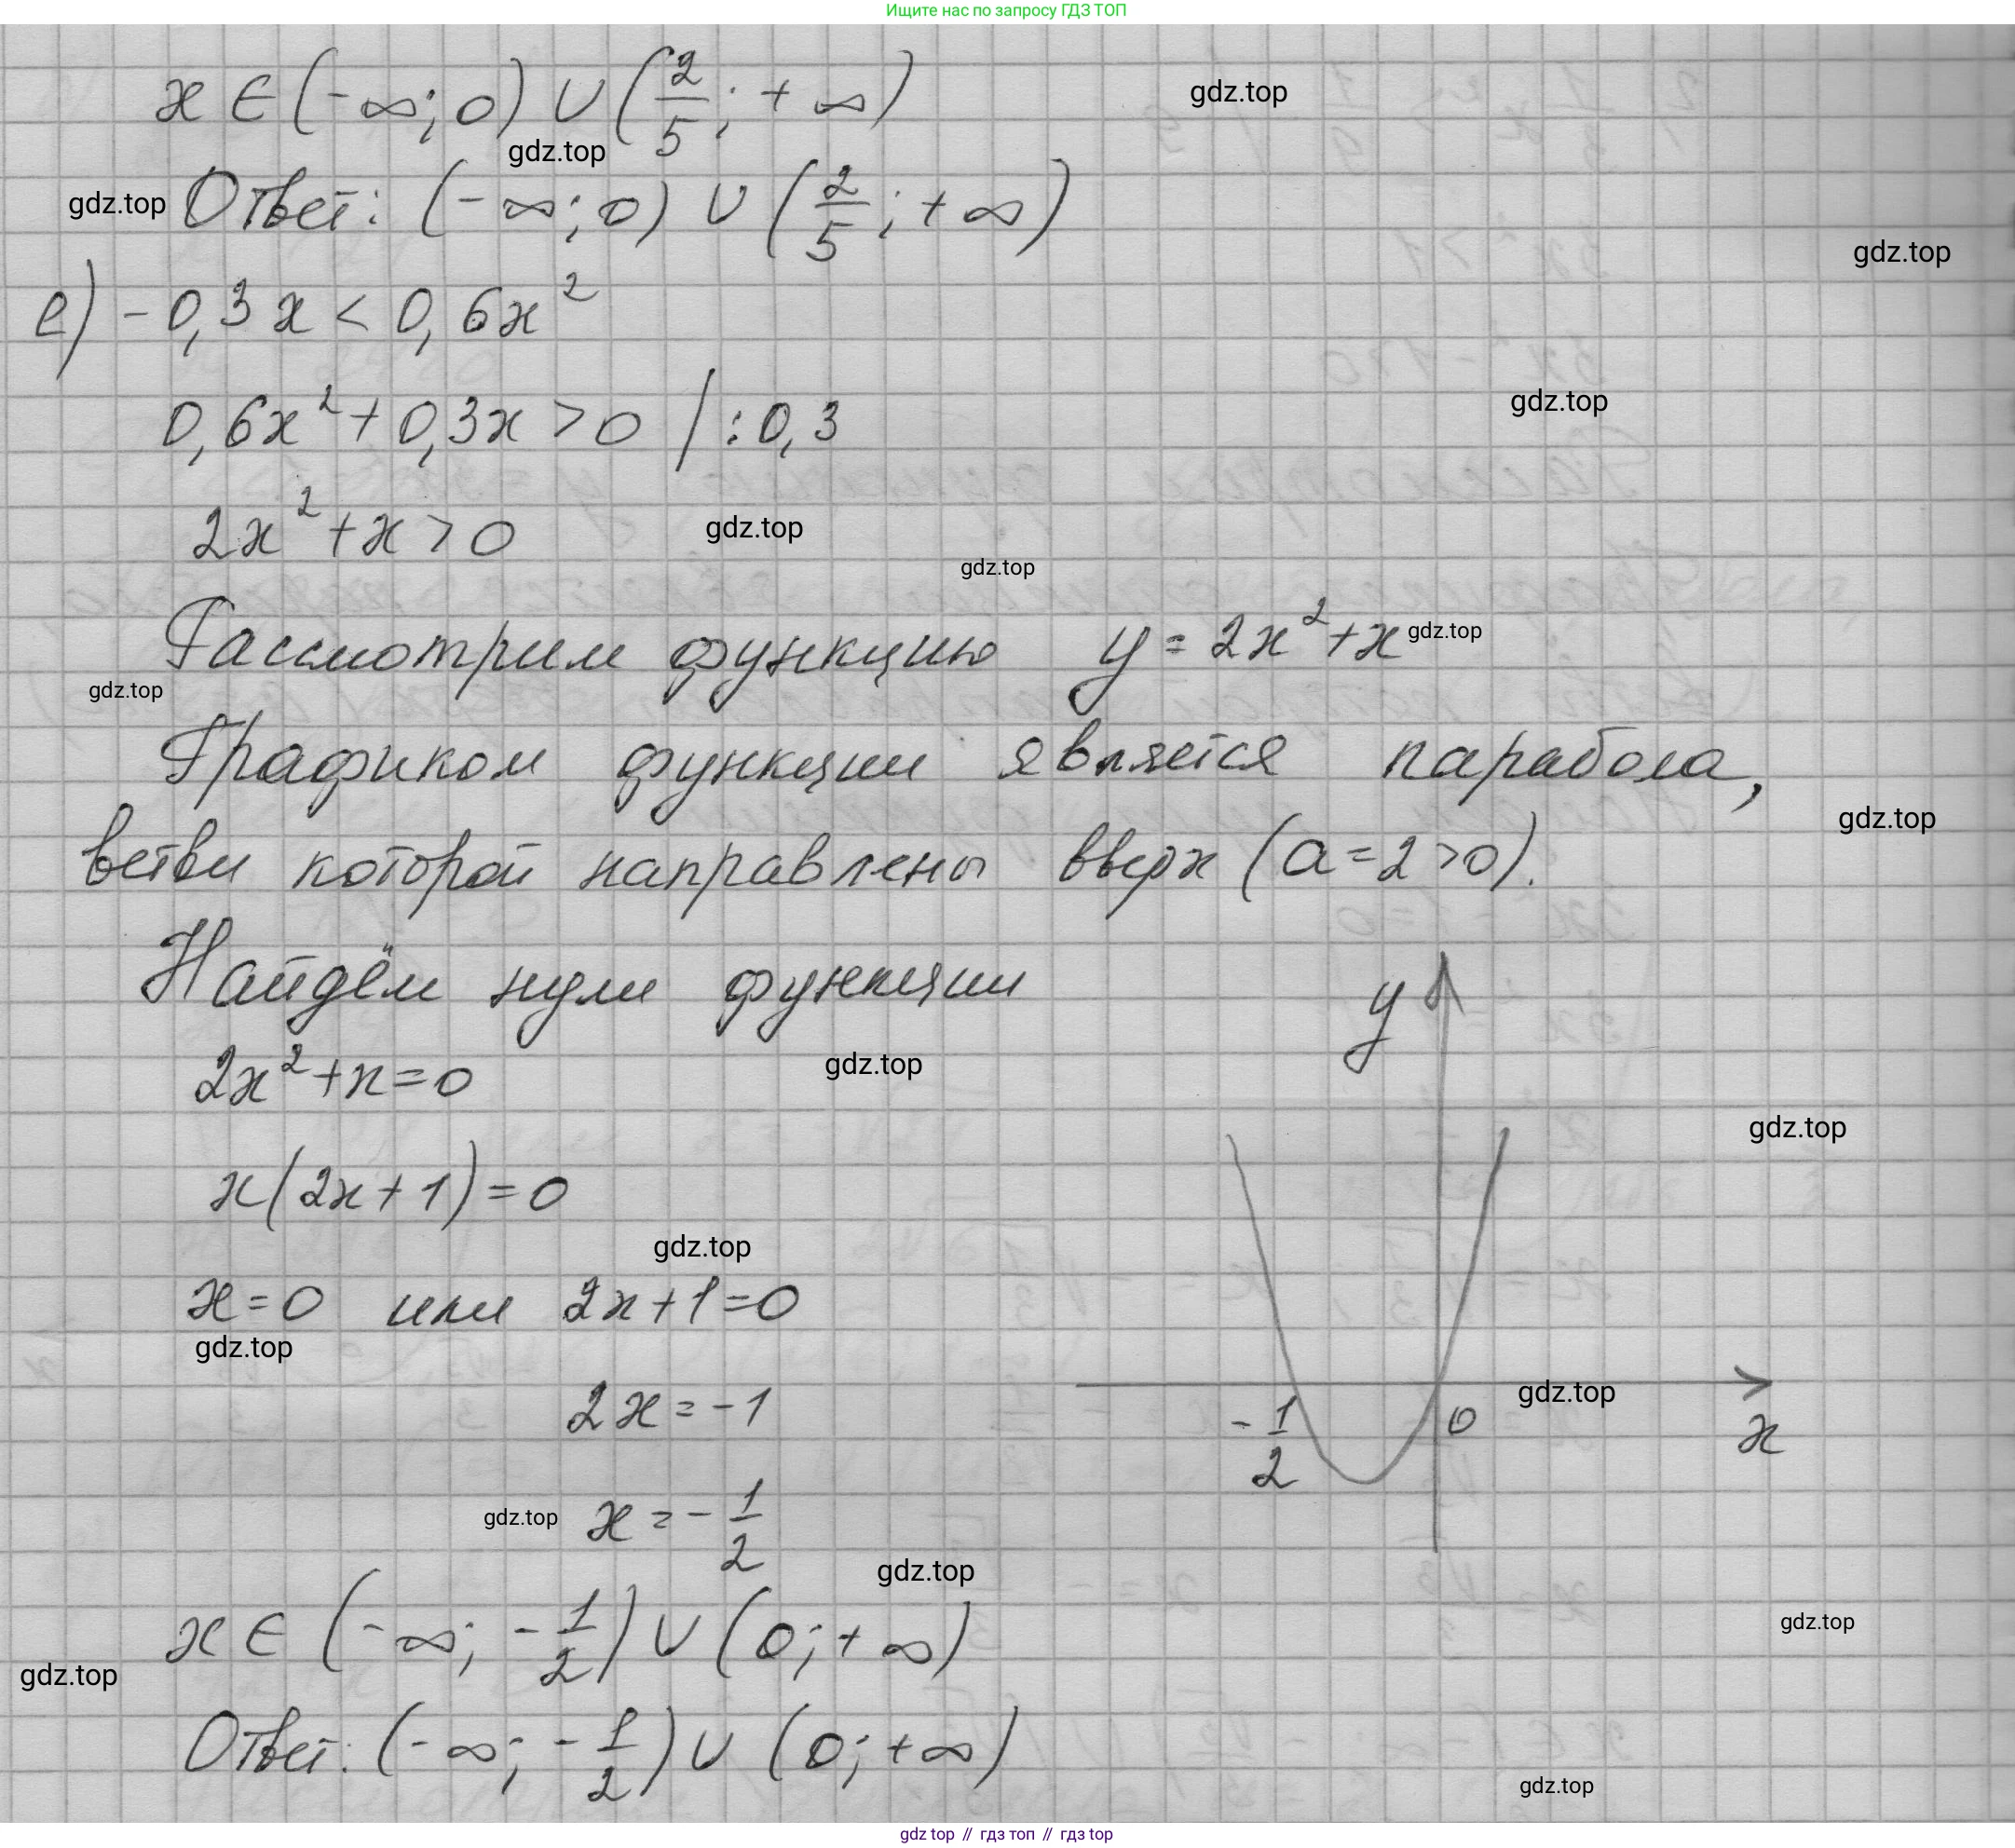 Ищите нас по запросу ГДЗ ТОП
x ∈ (-∞; 0) ∪ (2/5; +∞)
gdz.top
gdz.top
Ответ: (-∞; 0) ∪ (2/5; +∞)
gdz.top
gdz.top
е) -0,3x < 0,6x²
0,6x² + 0,3x > 0 / :0,3
gdz.top
2x² + x > 0
gdz.top
gdz.top
Рассмотрим функцию y = 2x² + x
gdz.top
gdz.top
Графиком функции является парабола,
gdz.top
ветви которой направлены вверх (a = 2 > 0).
Найдём нули функции
y
2x² + x = 0
gdz.top
gdz.top
x(2x + 1) = 0
gdz.top
x = 0 или 2x + 1 = 0
gdz.top
2x = -1
gdz.top
-1/2 0 x
gdz.top
x = -1/2
gdz.top
x ∈ (-∞; -1/2) ∪ (0; +∞)
gdz.top
gdz.top
Ответ: (-∞; -1/2) ∪ (0; +∞)
gdz.top
gdz top // гдз топ // гдз top